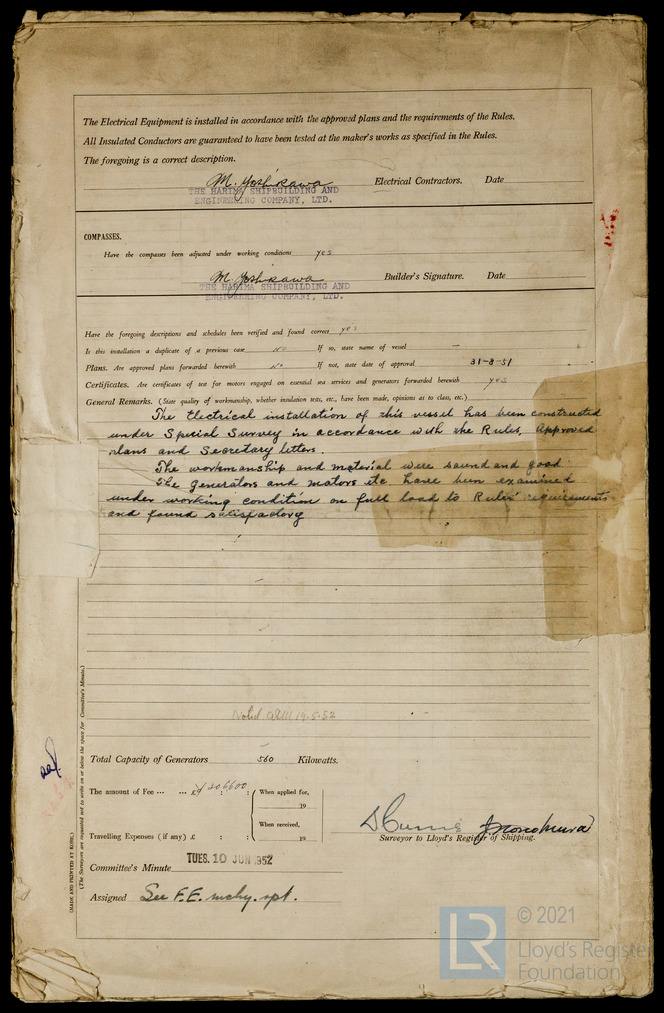 The Electrical Equipment is installed in accordance with the approved plans and the requirements of the Rules.
All Insulated Conductors are guaranteed to have been tested at the maker's works as specified in the Rules.
The foregoing is a correct description.
M. Yoshikawa Electrical Contractors. Date
THE HARIMA SHIPBUILDING AND
ENGINEERING COMPANY, LTD.
COMPASSES.
Have the compasses been adjusted under working conditions yes
M. Yoshikawa Builder's Signature. Date
THE HARIMA SHIPBUILDING AND
ENGINEERING COMPANY, LTD.
Have the foregoing descriptions and schedules been verified and found correct yes
Is this installation a duplicate of a previous case No If so, state name of vessel —
Plans. Are approved plans forwarded herewith No If not, state date of approval 31-8-51
Certificates. Are certificates of test for motors engaged on essential sea services and generators forwarded herewith yes
General Remarks. (State quality of workmanship, whether insulation tests, etc., have been made, opinions as to class, etc.)
The Electrical installation of this vessel has been constructed
under Special Survey in accordance with the Rules, Approved
plans and Secretary letters.
The workmanship and material were sound and good
The generators and motors etc have been examined
under working condition on full load to Rules' requirements
and found satisfactory
Noted 19.5.52
Total Capacity of Generators 560 Kilowatts.
The amount of Fee ... ... £ : : When applied for,
19
When received,
Travelling Expenses (if any) £ : : 19
Surveyor to Lloyd's Register of Shipping.
Committee's Minute TUES. 10 JUN 1952
Assigned See F.E. mchy. rpt.
(MADE AND PRINTED AT KOBE.)
(The Surveyors are requested not to write on or below the space for Committee's Minute.)
LR
© 2021
Lloyd's Register
Foundation